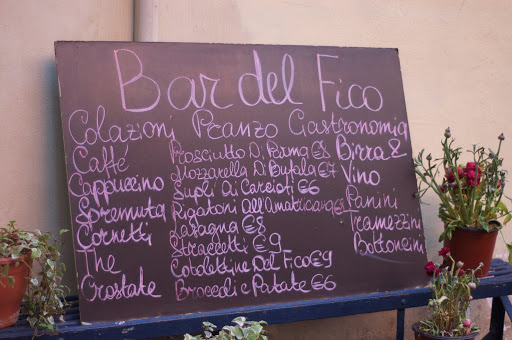 Bar del Fico
Colazioni Pranzo Gastronomia
Caffé
Cappuccino
Spremuta
Cornetti
The
Crostate
Prosciutto Di Parma €8
Mozzarella Di Bufala €7
Supli Ai Carciofi €6
Rigatoni All'Amatriciana €8
Lasagna €8
Straccetti €9
Cotolettine Del Fico €9
Broccoli e Patate €6
Birra &
Vino
Panini
Tramezzini
Bottoncini